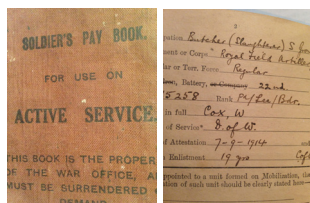 SOLDIER'S PAY BOOK.
FOR USE ON
ACTIVE SERVICE
THIS BOOK IS THE PROPER
OF THE WAR OFFICE, A
MUST BE SURRENDERED
DEMAND
3
pation Butcher (Slaughterer)
ment or Corps Royal Field Artille
ar or Terr. Force Regular
Battery, or Company 22nd
5258 Rank
in full Cox, W
of Service D. of W.
f Attestation 7-9-1914 and
Enlistment 19 yrs
ppointed to a unit formed on Mobilization, this
tion of such unit should be clearly stated here